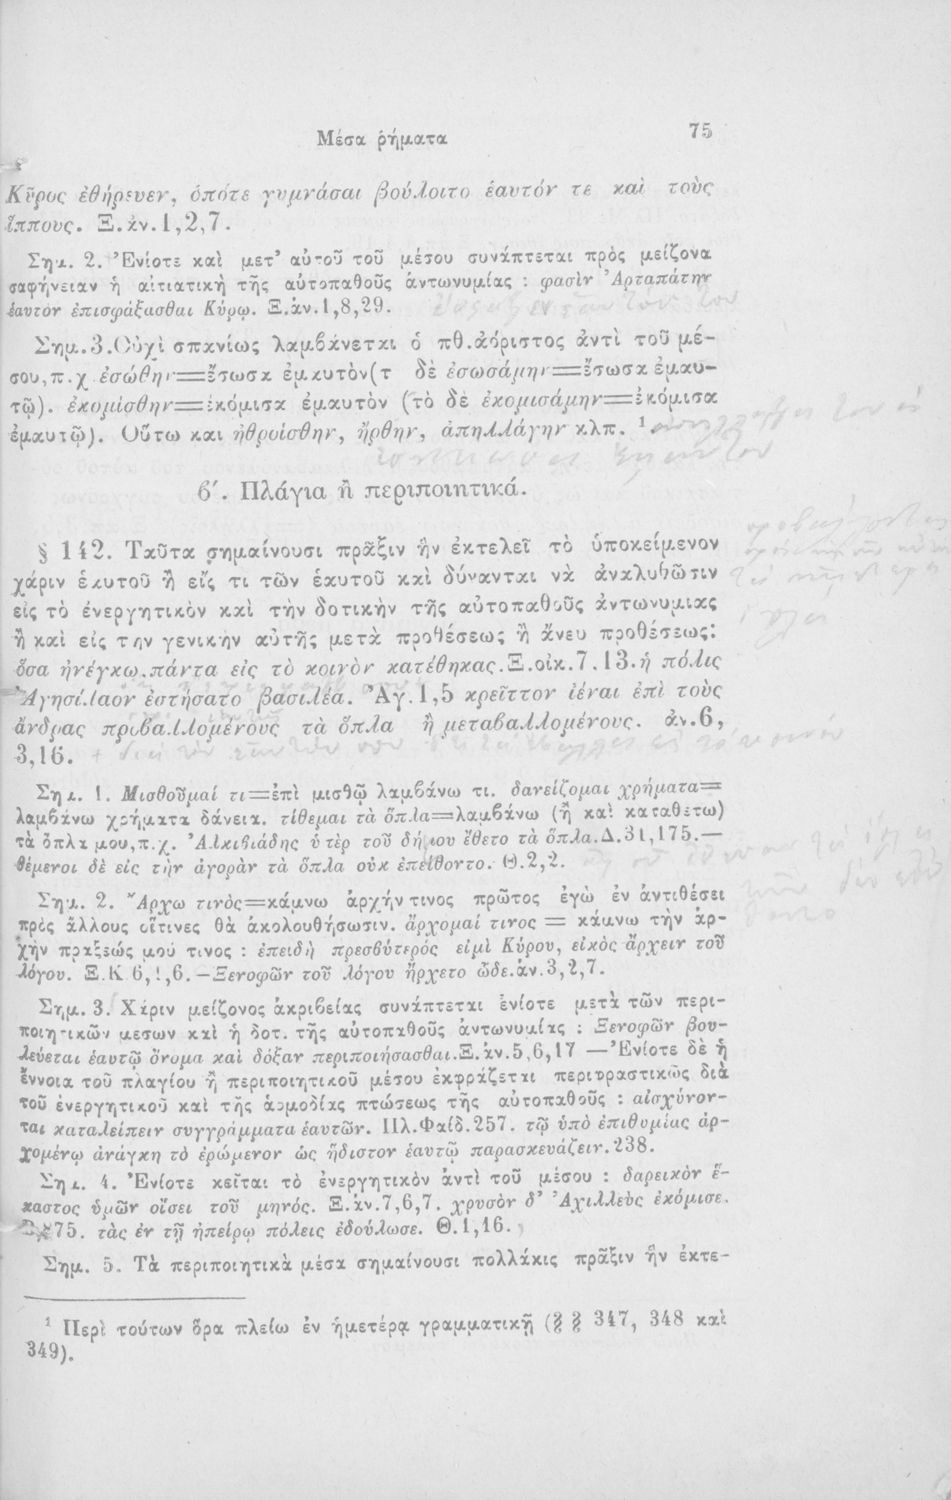 Μέσα ῥήματα 75
Κῦρος ἐθήρευεν, ὁπότε γυμνάσαι βούλοιτο ἑαυτόν τε καὶ τοὺς
ἵππους. Ξ.ἀν.1,2,7.
Σημ. 2. Ἐνίοτε καὶ μετ' αὐτοῦ τοῦ μέσου συνάπτεται πρὸς μείζονα
σαφήνειαν ἡ αἰτιατικὴ τῆς αὐτοπαθοῦς ἀντωνυμίας : φασὶν Ἀρταπάτην
ἑαυτὸν ἐπισφάξασθαι Κύρῳ. Ξ.ἀν.1,8,29.
Σημ. 3. Οὐχὶ σπανίως λαμβάνεται ὁ πθ. ἀόριστος ἀντὶ τοῦ μέ-
σου, π. χ ἐσώθην=ἔσωσα ἐμαυτὸν (τ δὲ ἐσωσάμην=ἔσωσα ἐμαυ-
τῷ). ἐκομίσθην=ἐκόμισα ἐμαυτὸν (τὸ δὲ ἐκομισάμην=ἐκόμισα
ἐμαυτῷ). Οὕτω και ἠθροίσθην, ἤρθην, ἀπηλλάγην κλπ. ¹
β'. Πλάγια ἢ περιποιητικά.
§ 142. Ταῦτα σημαίνουσι πρᾶξιν ἣν ἐκτελεῖ τὸ ὑποκείμενον
χάριν ἑαυτοῦ ἢ εἴς τι τῶν ἑαυτοῦ καὶ δύνανται νὰ ἀναλυθῶσιν
εἰς τὸ ἐνεργητικὸν καὶ τὴν δοτικὴν τῆς αὐτοπαθοῦς ἀντωνυμιας
ἢ καὶ εἰς την γενικὴν αὐτῆς μετὰ προθέσεως ἢ ἄνευ προθέσεως:
ὅσα ἠνέγκω, πάντα εἰς τὸ κοινὸν κατέθηκας. Ξ.οἰκ.7.13. ἡ πόλις
Ἀγησίλαον ἐστήσατο βασιλέα. Ἀγ.1,5 κρεῖττον ἰέναι ἐπὶ τοὺς
ἄνδρας προβαλλομένους τὰ ὅπλα ἢ μεταβαλλομένους. ἀν.6,
3,16.
Σημ. 1. Μισθοῦμαί τι=ἐπὶ μισθῷ λαμβάνω τι. δανείζομαι χρήματα=
λαμβάνω χρήματα δάνεια. τίθεμαι τὰ ὅπλα=λαμβάνω (ἢ καὶ καταθέτω)
τὰ ὅπλα μου, π. χ. Ἀλκιβιάδης ὑπὲρ τοῦ δήμου ἔθετο τὰ ὅπλα. Δ.31,175.—
θέμενοι δὲ εἰς τὴν ἀγορὰν τὰ ὅπλα οὐκ ἐπείθοντο. Θ.2,2.
Σημ. 2. Ἄρχω τινὸς=κάμνω ἀρχήν τινος πρῶτος ἐγὼ ἐν ἀντιθέσει
πρὸς ἄλλους οἵτινες θὰ ἀκολουθήσωσιν. ἄρχομαί τινος = κάμνω τὴν ἀρ-
χὴν πράξεώς μού τινος : ἐπειδὴ πρεσβύτερός εἰμὶ Κύρου, εἰκὸς ἄρχειν τοῦ
λόγου. Ξ.Κ 6,1,6. — Ξενοφῶν τοῦ λόγου ἤρχετο ὧδε. ἀν.3,2,7.
Σημ. 3. Χάριν μείζονος ἀκριβείας συνάπτεται ἐνίοτε μετὰ τῶν περι-
ποιητικῶν μεσων καὶ ἡ δοτ. τῆς αὐτοπαθοῦς ἀντωνυμίας : Ξενοφῶν βου-
λεύεται ἑαυτῷ ὄνομα καὶ δόξαν περιποιήσασθαι. Ξ.ἀν.5,6,17 — Ἐνίοτε δὲ ἡ
ἔννοια τοῦ πλαγίου ἢ περιποιητικοῦ μέσου ἐκφράζεται περιφραστικῶς διὰ
τοῦ ἐνεργητικοῦ καὶ τῆς ἁρμοδίας πτώσεως τῆς αὐτοπαθοῦς : αἰσχύνον-
ται καταλείπειν συγγράμματα ἑαυτῶν. Πλ.Φαίδ.257. τῷ ὑπὸ ἐπιθυμίας ἀρ-
χομένῳ ἀνάγκη τὸ ἐρώμενον ὡς ἥδιστον ἑαυτῷ παρασκευάζειν. 238.
Σημ. 4. Ἐνίοτε κεῖται τὸ ἐνεργητικὸν ἀντὶ τοῦ μέσου : δαρεικὸν ἕ-
καστος ὑμῶν οἴσει τοῦ μηνός. Ξ.ἀν.7,6,7. χρυσὸν δ' Ἀχιλλεὺς ἐκόμισε.
875. τὰς ἐν τῇ ἠπείρῳ πόλεις ἐδούλωσε. Θ.1,16.
Σημ. 5. Τὰ περιποιητικὰ μέσα σημαίνουσι πολλάκις πρᾶξιν ἣν ἐκτε-
¹ Περὶ τούτων ὅρα πλείω ἐν ἡμετέρᾳ γραμματικῇ (§ § 347, 348 καὶ
349).